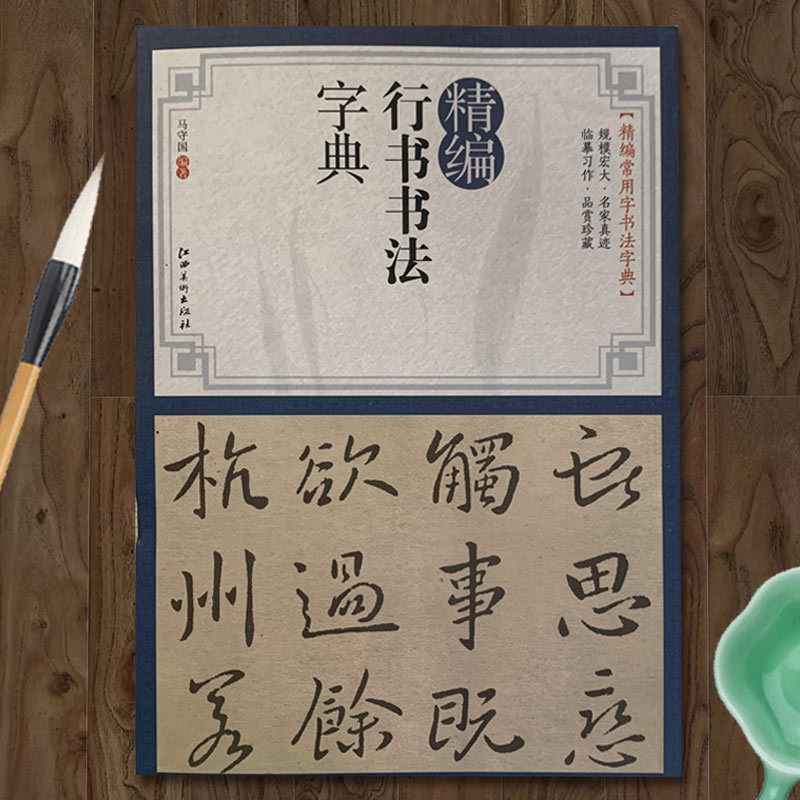 【精编常用字书法字典】
规模宏大·名家真迹
临摹习作·品赏珍藏
精编
行书书法
字典
马守国 编著
江西美術出版社
思
觸事既
欲過餘
杭州若